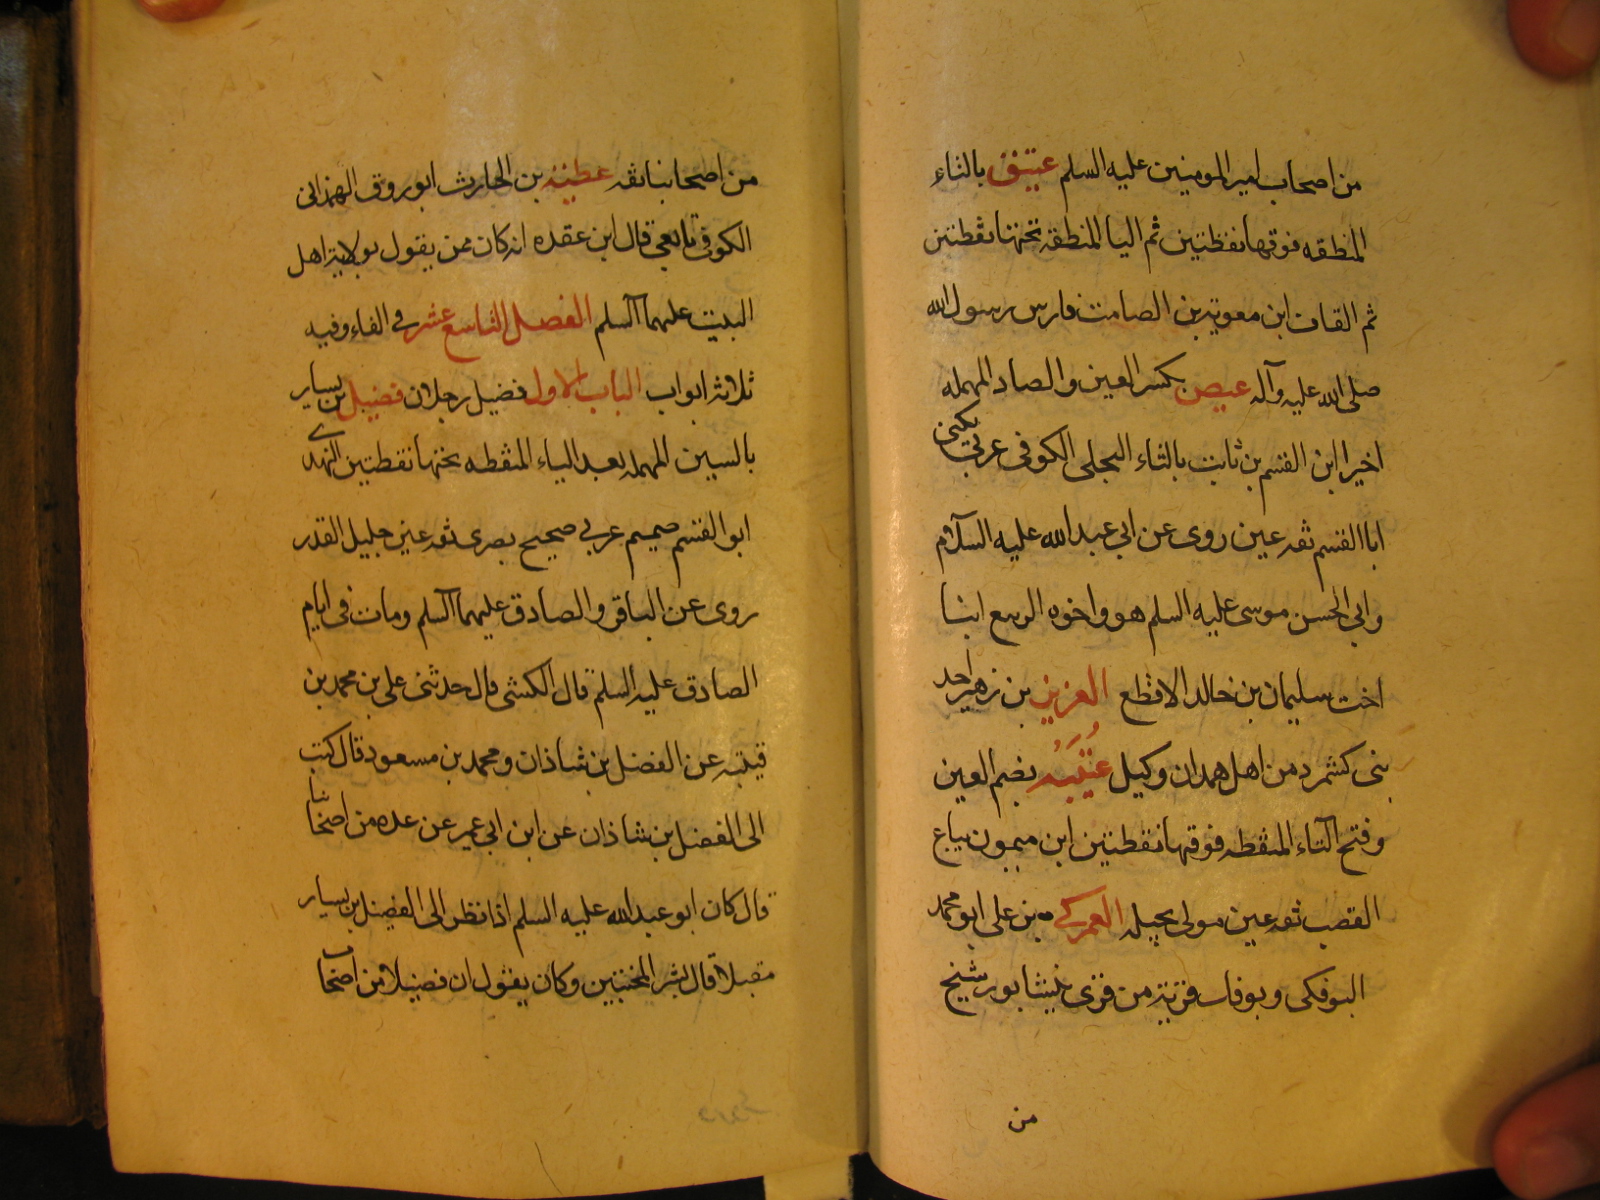 من اصحاب امير المومنين عليه السلم عتيق بالتاء
المنطقه فوقها نقطتين ثم اليا المنطقه تحتها نقطتين
ثم القاف ابن معوية بن الصامت فارس رسول الله
صلى الله عليه وآله عيص بكسر العين والصاد المهمله
اخيرا ابن القسم بن ثابت بالثاء البجلى الكوفى عربى يكنى
ابا القسم ثقه عين روى عن ابى عبد الله عليه السلام
وابى الحسن موسى عليه السلم هو واخوه الربيع ابنا
اخت سليمان بن خالد الاقطع العزيز بن زهير احد
بنى كشمرد من اهل همدان وكيل عُتَيْبَه بضم العين
وفتح التاء المنقطه فوقها نقطتين ابن ميمون بياع
القصب ثقه عين مولى بجيله العمركى بن على ابو محمد
البوفكى وبوفك قرية من قرى نيشابور شيخ
من
من اصحابنا ثقه عطيه بن الحارث ابو روق الهمدانى
الكوفى تابعى قال ابن عقده انه كان ممن يقول بولاية اهل
البيت عليهما السلم الفصل التاسع عشر فى الفاء وفيه
ثلاثة ابواب الباب الاول فضيل رجلان فضيل بن يسار
بالسين المهمله بعد الياء المنقطه تحتها نقطتين النهدى
ابو القسم صميم عربى صحيح بصرى ثقه عين جليل القدر
روى عن الباقر والصادق عليهما السلم ومات فى ايام
الصادق عليه السلم قال الكشى قال حدثنى على بن محمد بن
قيتبه عن الفضل بن شاذان ومحمد بن مسعود قال كتب
الى الفضل بن شاذان عن ابن ابى عمير عن عده من اصحابنا
قال كان ابو عبد الله عليه السلم اذا نظر الى الفضيل بن يسار
مقبلا قال بشر المخبتين وكان يقول ان فضيلا من اصحاب